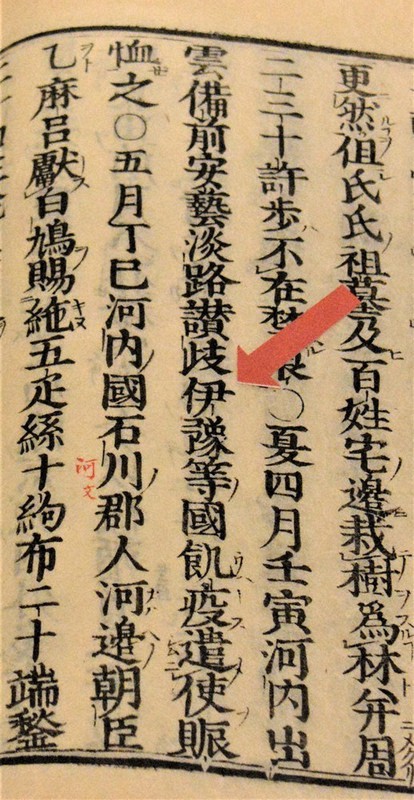 更然但氏氏祖墓及百姓宅邊栽樹爲林并周
二三十許歩不在禁限○夏四月壬寅河内出
雲備前安藝淡路讃岐伊豫等國飢疫遣使賑
恤之○五月丁巳河内國石川郡人河邊朝臣
河文
乙麻呂獻白鳩賜絁五疋絲十絇布二十端鍫